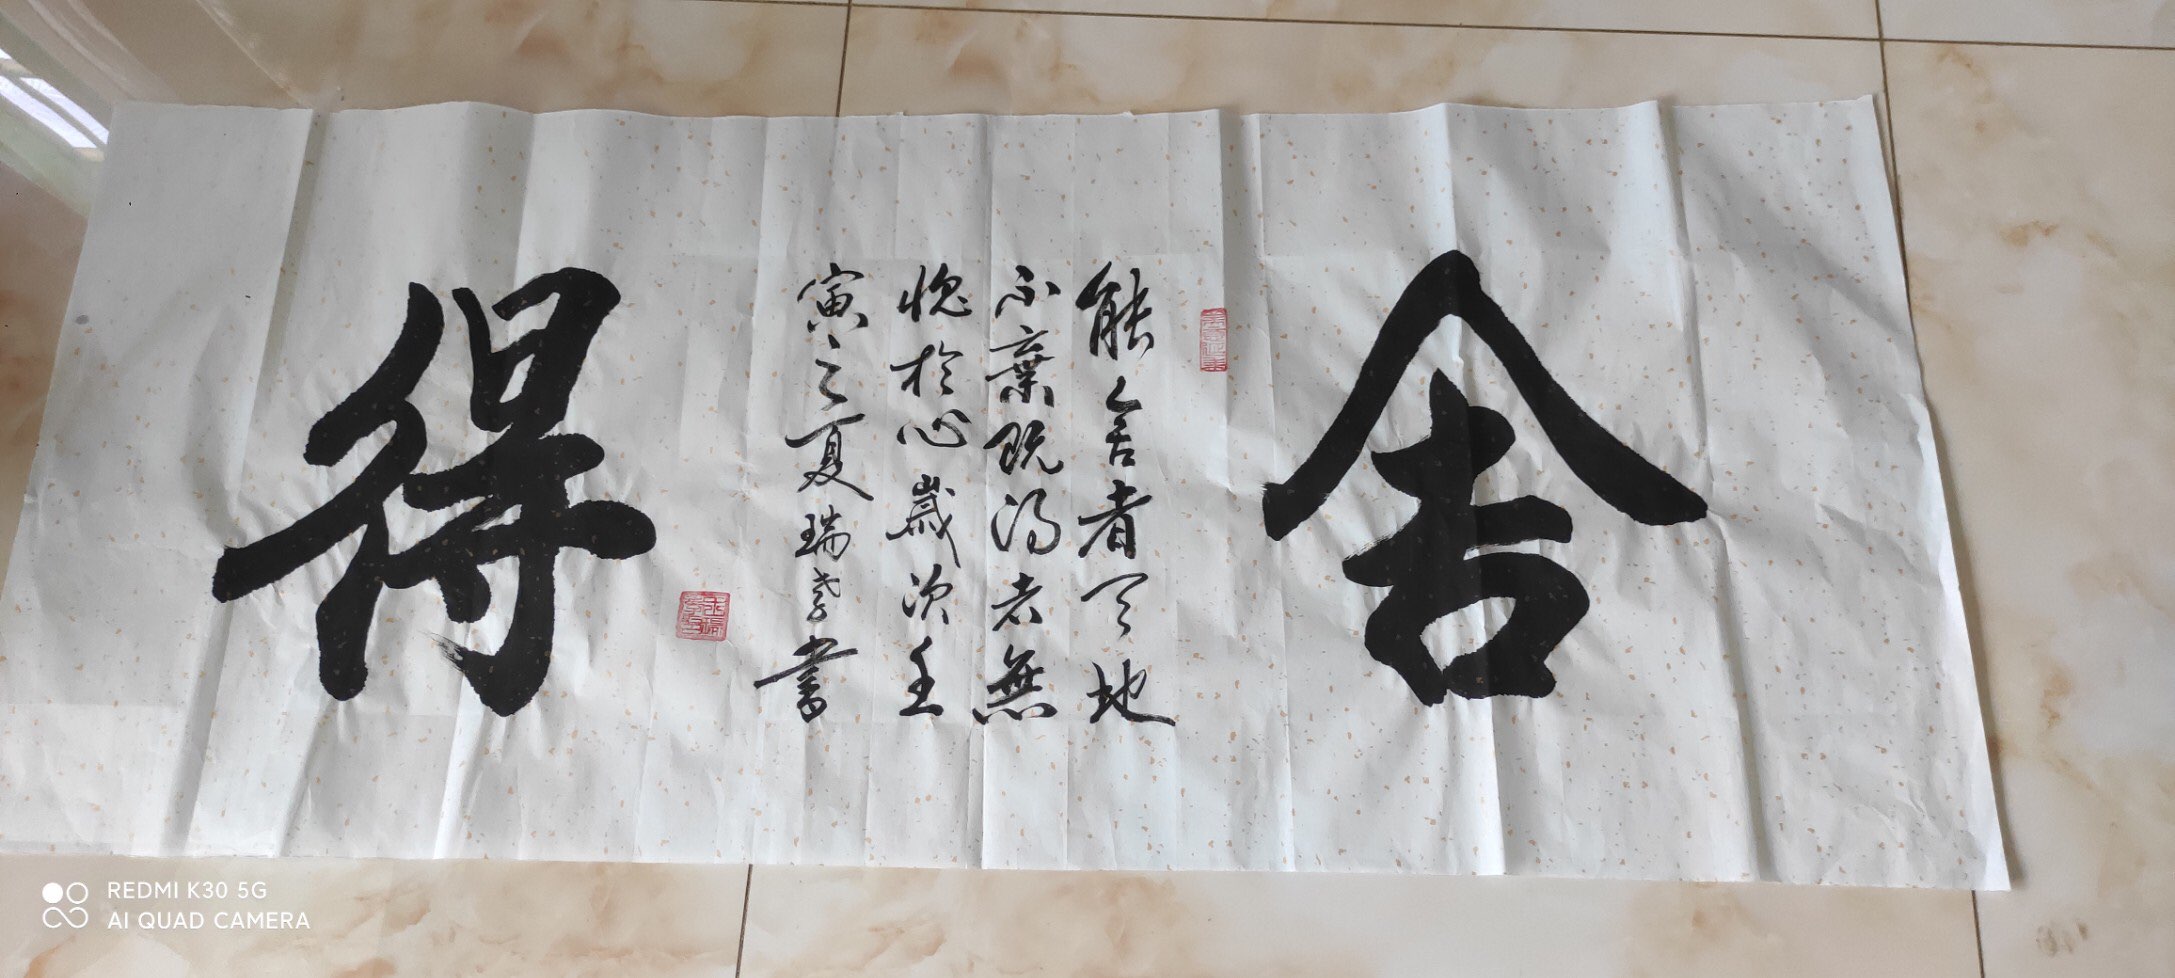 舍
能舍者天地
不棄既得者無
愧於心歲次壬
寅之夏瑞芳書
得
REDMI K30 5G
AI QUAD CAMERA